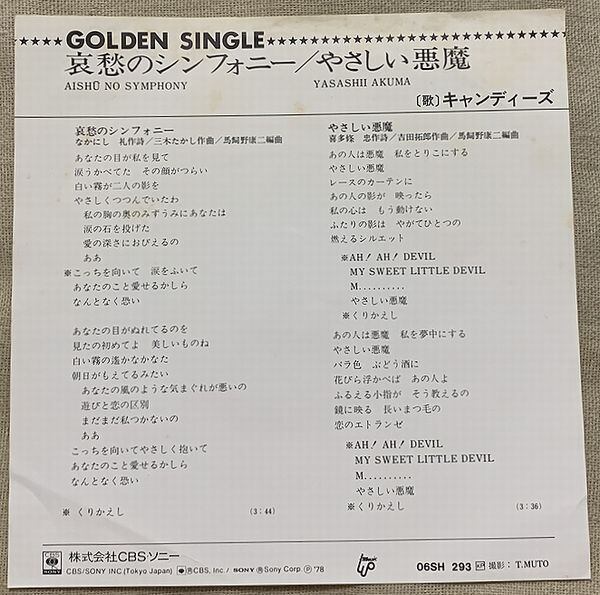 ★★★★GOLDEN SINGLE★★★★★★★★★★★★★★★★★★★★★★★★★★★★
哀愁のシンフォニー/やさしい悪魔
AISHŪ NO SYMPHONY YASASHII AKUMA
〔歌〕キャンディーズ
哀愁のシンフォニー
なかにし 礼作詩/三木たかし作曲/馬飼野康二編曲
あなたの目が私を見て
涙うかべてた その顔がつらい
白い霧が二人の影を
やさしくつつんでいたわ
私の胸の奥のみずうみにあなたは
涙の石を投げた
愛の深さにおびえるの
ああ
※こっちを向いて 涙をふいて
あなたのこと愛せるかしら
なんとなく恐い
あなたの目がぬれてるのを
見たの初めてよ 美しいものね
白い霧の遙かなかなた
朝日がもえてるみたい
あなたの風のような気まぐれが悪いの
遊びと恋の区別
まだまだ私つかないの
ああ
こっちを向いてやさしく抱いて
あなたのこと愛せるかしら
なんとなく恐い
※ くりかえし (3:44)
やさしい悪魔
喜多條 忠作詩/吉田拓郎作曲/馬飼野康二編曲
あの人は悪魔 私をとりこにする
やさしい悪魔
レースのカーテンに
あの人の影が 映ったら
私の心は もう動けない
ふたりの影は やがてひとつの
燃えるシルエット
※AH! AH! DEVIL
MY SWEET LITTLE DEVIL
M..........
やさしい悪魔
※くりかえし
あの人は悪魔 私を夢中にする
やさしい悪魔
バラ色 ぶどう酒に
花びら浮かべば あの人よ
ふるえる小指が そう教えるの
鏡に映る 長いまつ毛の
恋のエトランゼ
※AH! AH! DEVIL
MY SWEET LITTLE DEVIL
M..........
やさしい悪魔
※くりかえし (3:36)
CBS SONY 株式会社CBS・ソニー
CBS/SONY INC (Tokyo Japan) ®CBS, Inc./SONY ®Sony Corp. Ⓟ'78
06SH 293 撮影:T.MUTO